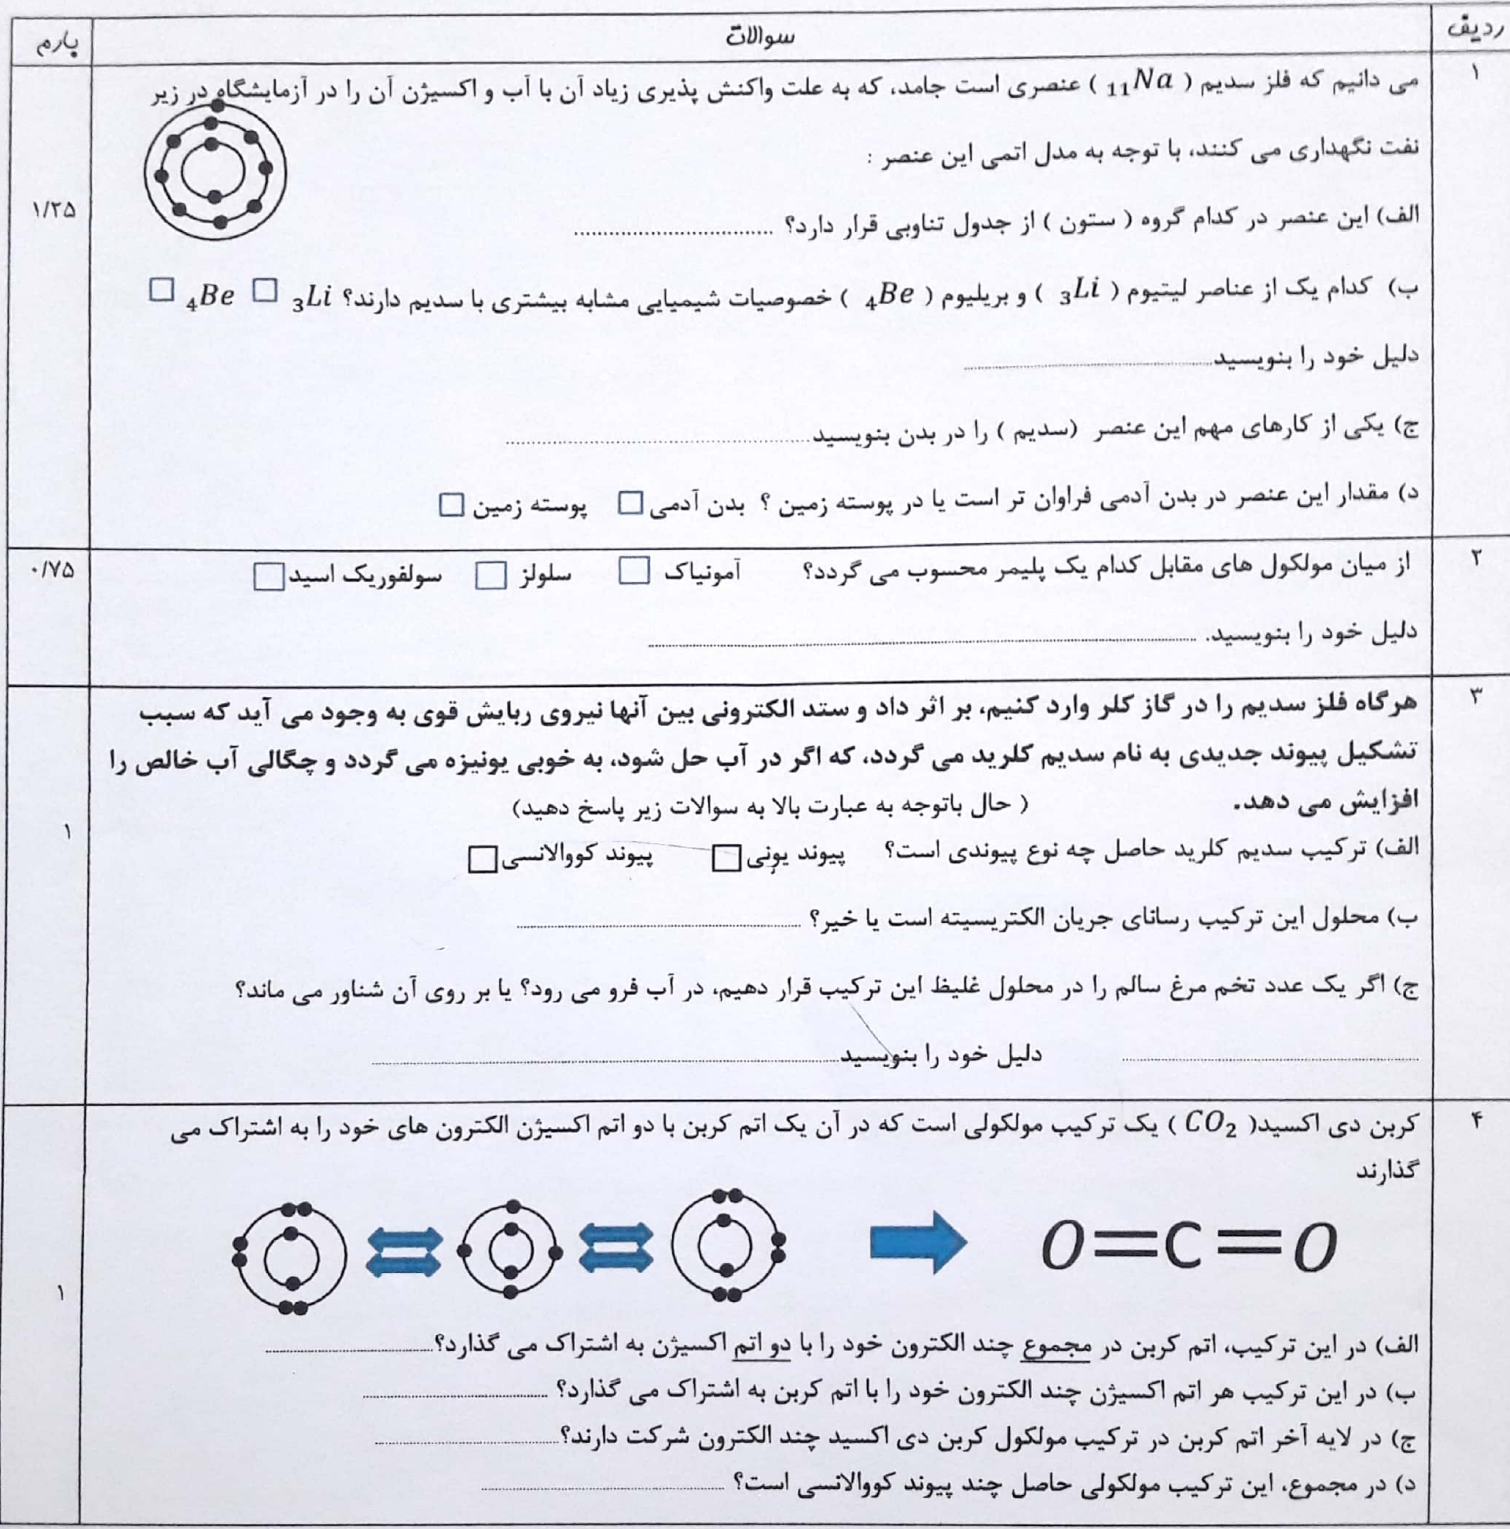 ردیف سوالات بارم
۱ می دانیم که فلز سدیم ( ₁₁Na ) عنصری است جامد، که به علت واکنش پذیری زیاد آن با آب و اکسیژن آن را در آزمایشگاه در زیر
نفت نگهداری می کنند، با توجه به مدل اتمی این عنصر :
الف) این عنصر در کدام گروه ( ستون ) از جدول تناوبی قرار دارد؟ ..............................
۱/۲۵
ب) کدام یک از عناصر لیتیوم ( ₃Li ) و بریلیوم ( ₄Be ) خصوصیات شیمیایی مشابه بیشتری با سدیم دارند؟ ₃Li □ ₄Be □
دلیل خود را بنویسید..............................
ج) یکی از کارهای مهم این عنصر (سدیم ) را در بدن بنویسید..............................
د) مقدار این عنصر در بدن آدمی فراوان تر است یا در پوسته زمین ؟ بدن آدمی □ پوسته زمین □
۲ از میان مولکول های مقابل کدام یک پلیمر محسوب می گردد؟ آمونیاک □ سلولز □ سولفوریک اسید □ ۰/۷۵
دلیل خود را بنویسید. ..............................
۳ هرگاه فلز سدیم را در گاز کلر وارد کنیم، بر اثر داد و ستد الکترونی بین آنها نیروی ربایش قوی به وجود می آید که سبب
تشکیل پیوند جدیدی به نام سدیم کلرید می گردد، که اگر در آب حل شود، به خوبی یونیزه می گردد و چگالی آب خالص را
افزایش می دهد. ( حال باتوجه به عبارت بالا به سوالات زیر پاسخ دهید)
۱
الف) ترکیب سدیم کلرید حاصل چه نوع پیوندی است؟ پیوند یونی □ پیوند کووالانسی □
ب) محلول این ترکیب رسانای جریان الکتریسیته است یا خیر؟ ..............................
ج) اگر یک عدد تخم مرغ سالم را در محلول غلیظ این ترکیب قرار دهیم، در آب فرو می رود؟ یا بر روی آن شناور می ماند؟
.............................. دلیل خود را بنویسید..............................
۴ کربن دی اکسید( CO₂ ) یک ترکیب مولکولی است که در آن یک اتم کربن با دو اتم اکسیژن الکترون های خود را به اشتراک می
گذارند
O=C=O
۱
الف) در این ترکیب، اتم کربن در مجموع چند الکترون خود را با دو اتم اکسیژن به اشتراک می گذارد؟..............................
ب) در این ترکیب هر اتم اکسیژن چند الکترون خود را با اتم کربن به اشتراک می گذارد؟ ..............................
ج) در لایه آخر اتم کربن در ترکیب مولکول کربن دی اکسید چند الکترون شرکت دارند؟..............................
د) در مجموع، این ترکیب مولکولی حاصل چند پیوند کووالانسی است؟ ..............................